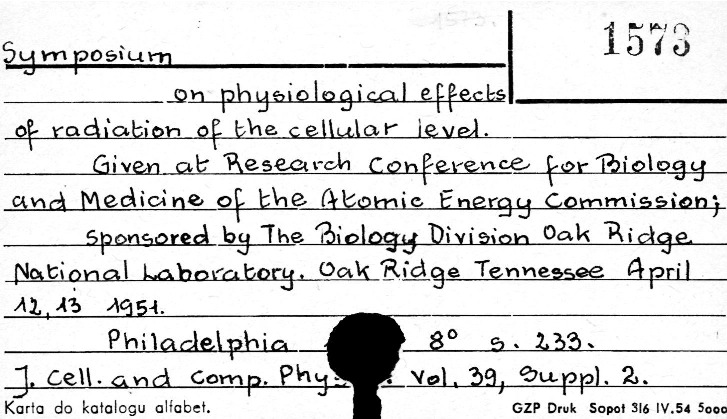 1573
Symposium
on physiological effects
of radiation of the cellular level.
Given at Research Conference for Biology
and Medicine of the Atomic Energy Commission;
sponsored by The Biology Division Oak Ridge
National Laboratory. Oak Ridge Tennessee April
12, 13 1951.
Philadelphia 8° s. 233.
J. Cell. and Comp. Phy Vol. 39, Suppl. 2.
Karta do katalogu alfabet. GZP Druk Sopot 316 IV.54